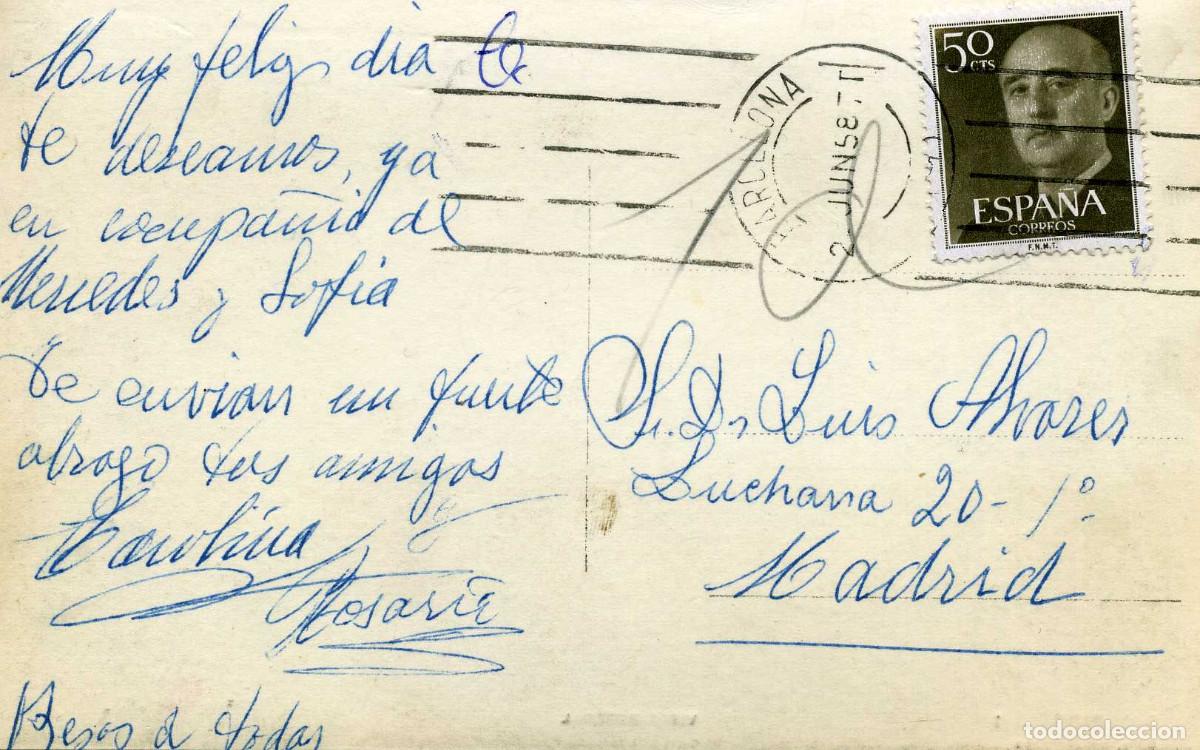 Muy feliz dia te
te deseamos, ya
en compañia de
Mercedes y Sofia
Te envian un fuerte
abrazo tus amigos
Carolina y
Rosario
Besos de todas
BARCELONA
2 JUN 58
50
CTS
ESPAÑA
CORREOS
F.N.M.T.
Sr. Dn Luis Alvares
Luchana 20-1º
Madrid
todocoleccion